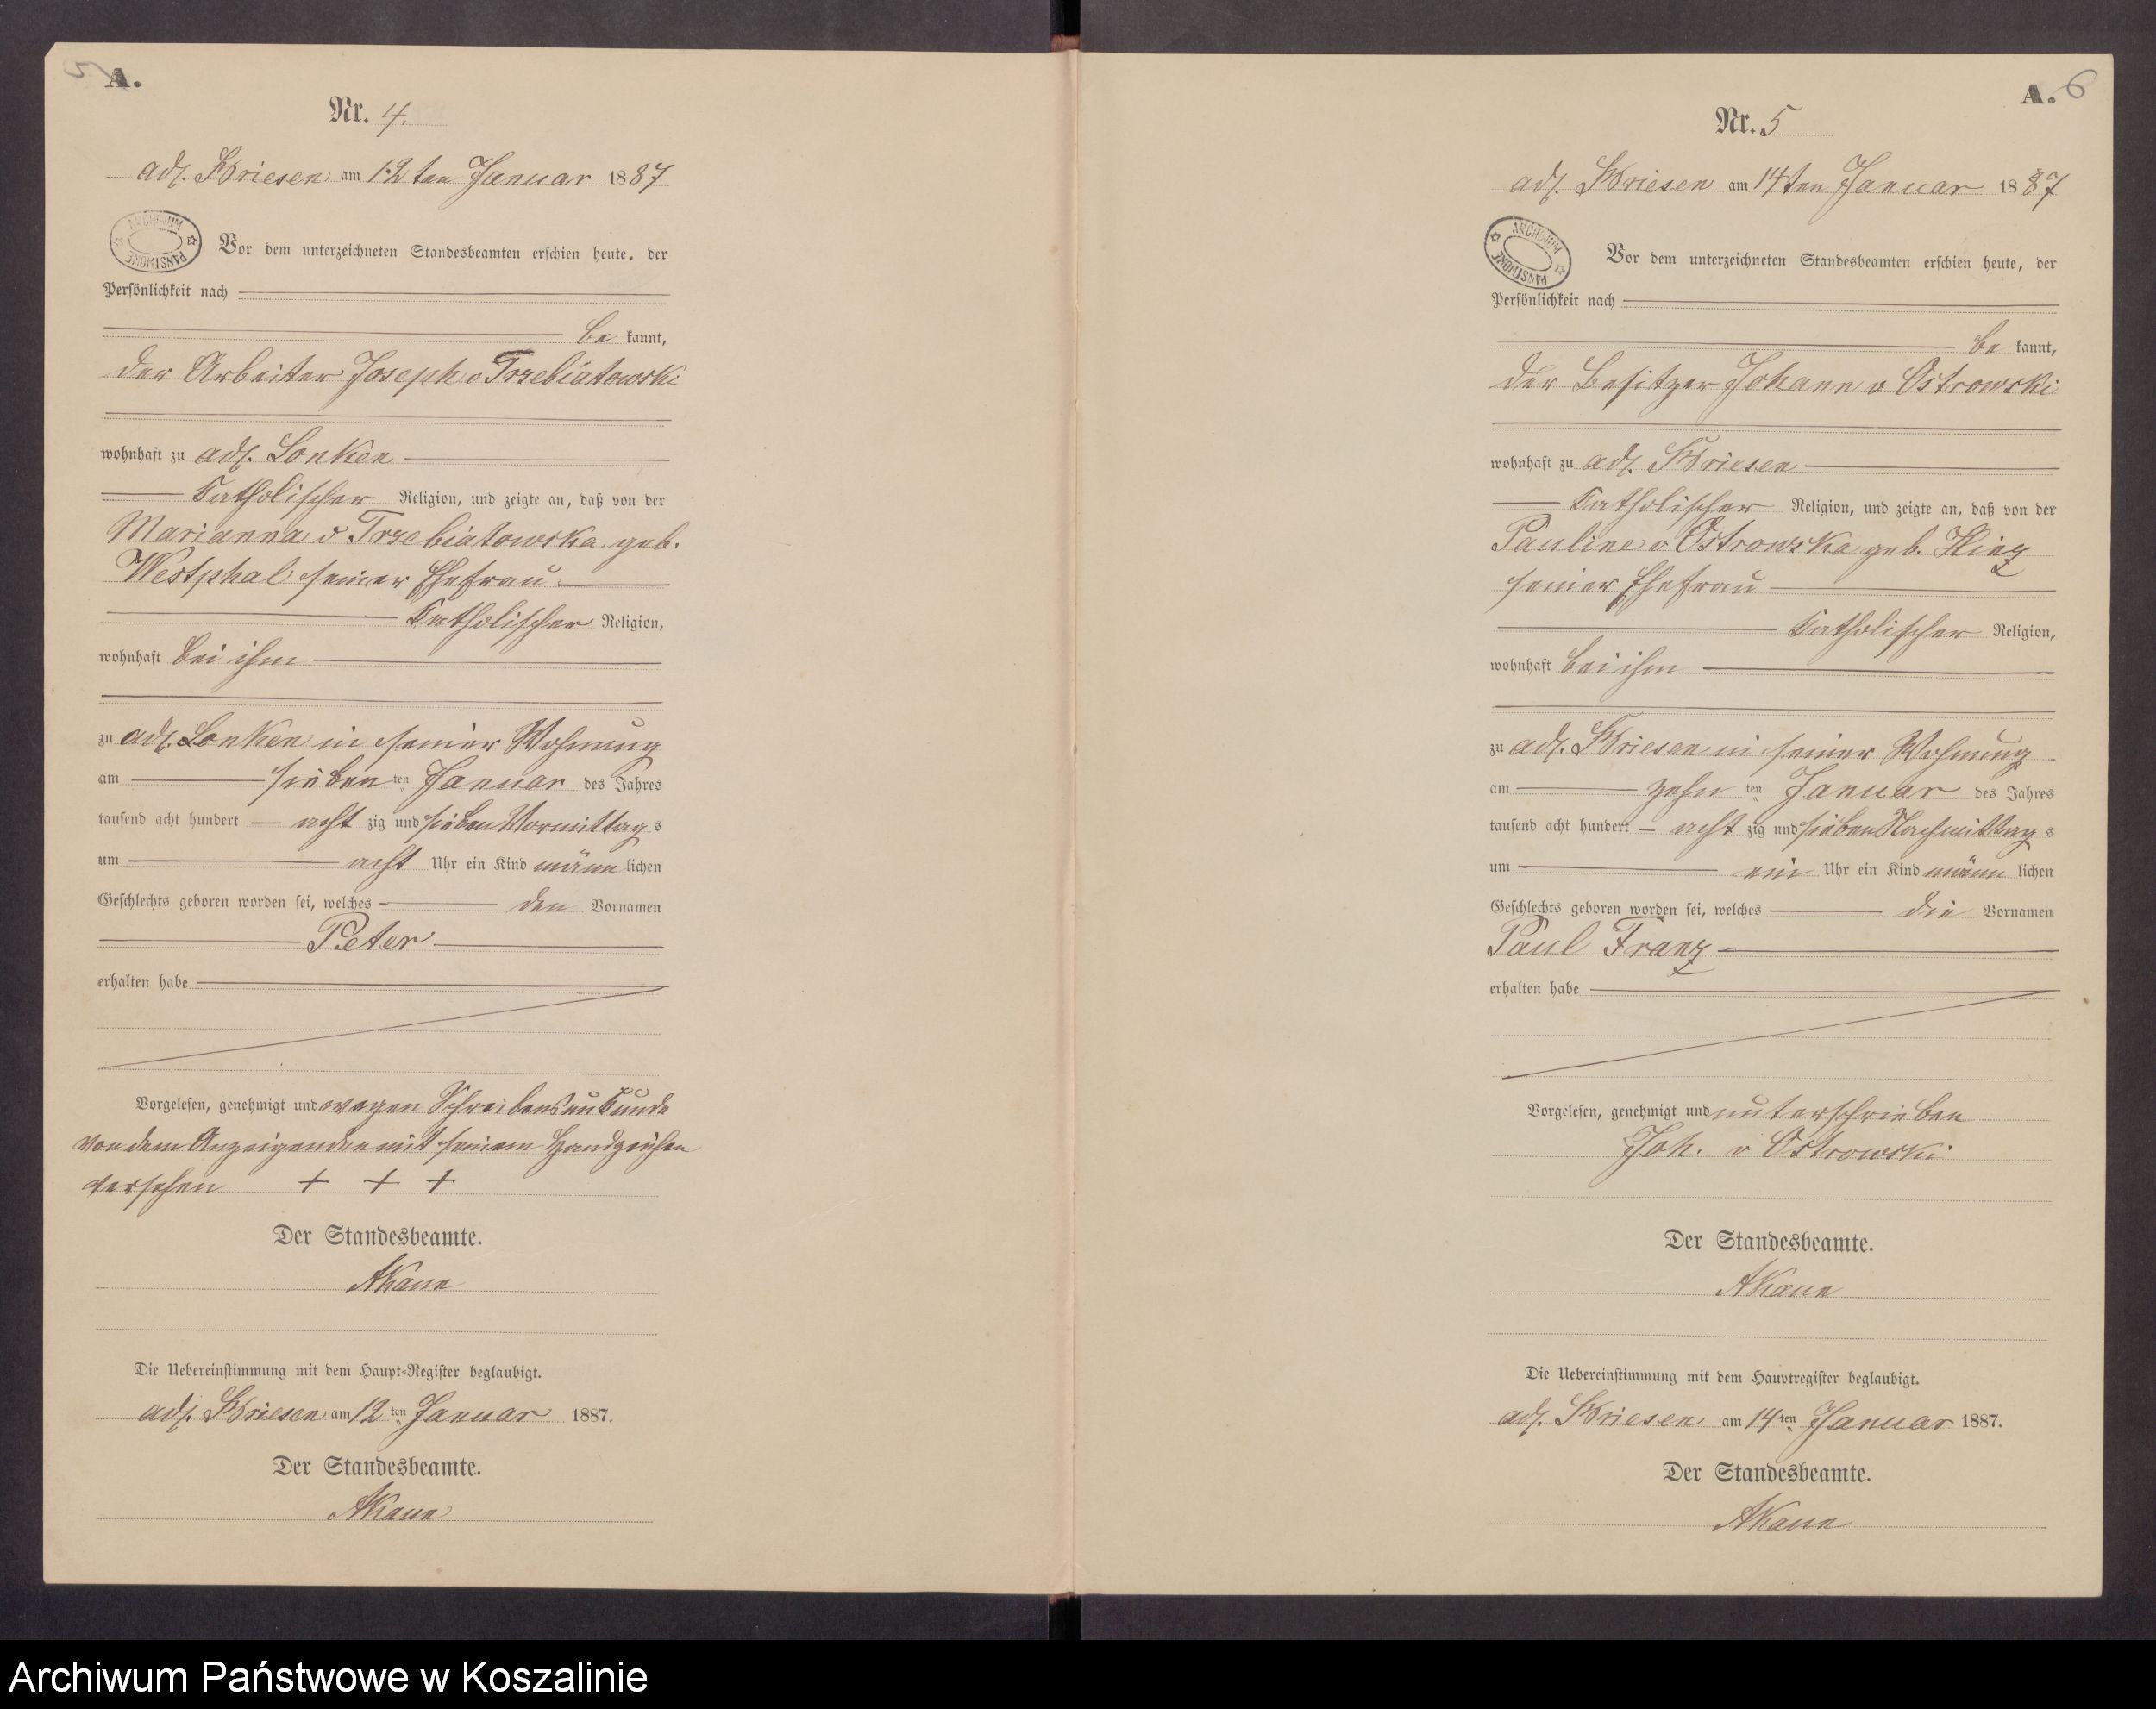 A.
Nr. 4.
adl. Briesen am 12ten Januar 1887
ARCHIWUM PAŃSTWOWE
Vor dem unterzeichneten Standesbeamten erschien heute, der
Persönlichkeit nach
bekannt,
der Arbeiter Joseph v Trzebiatowski
wohnhaft zu adl. Lonken
katholischer Religion, und zeigte an, daß von der
Marianna v Trzebiatowska geb.
Westphal seiner Ehefrau
katholischer Religion,
wohnhaft bei ihm
zu adl. Lonken in seiner Wohnung
am siebenten Januar des Jahres
tausend acht hundert achtzig und sieben Vormittags
um acht Uhr ein Kind männlichen
Geschlechts geboren worden sei, welches den Vornamen
Peter
erhalten habe
Vorgelesen, genehmigt und wegen Schreibensunkunde
von dem Anzeigenden mit seinem Handzeichen
versehen + + +
Der Standesbeamte.
Die Uebereinstimmung mit dem Haupt-Register beglaubigt.
adl. Briesen am 12ten Januar 1887.
Der Standesbeamte.
A. 6
Nr. 5
adl. Briesen am 14ten Januar 1887
ARCHIWUM PAŃSTWOWE
Vor dem unterzeichneten Standesbeamten erschien heute, der
Persönlichkeit nach
bekannt,
der Besitzer Johann v Ostrowski
wohnhaft zu adl. Briesen
katholischer Religion, und zeigte an, daß von der
Pauline v Ostrowska geb. Hinz
seiner Ehefrau
katholischer Religion,
wohnhaft bei ihm
zu adl. Briesen in seiner Wohnung
am zehnten Januar des Jahres
tausend acht hundert achtzig und sieben Nachmittags
um ein Uhr ein Kind männlichen
Geschlechts geboren worden sei, welches die Vornamen
Paul Franz
erhalten habe
Vorgelesen, genehmigt und unterschrieben
Joh. v Ostrowski
Der Standesbeamte.
Die Uebereinstimmung mit dem Hauptregister beglaubigt.
adl. Briesen am 14ten Januar 1887.
Der Standesbeamte.
Archiwum Państwowe w Koszalinie